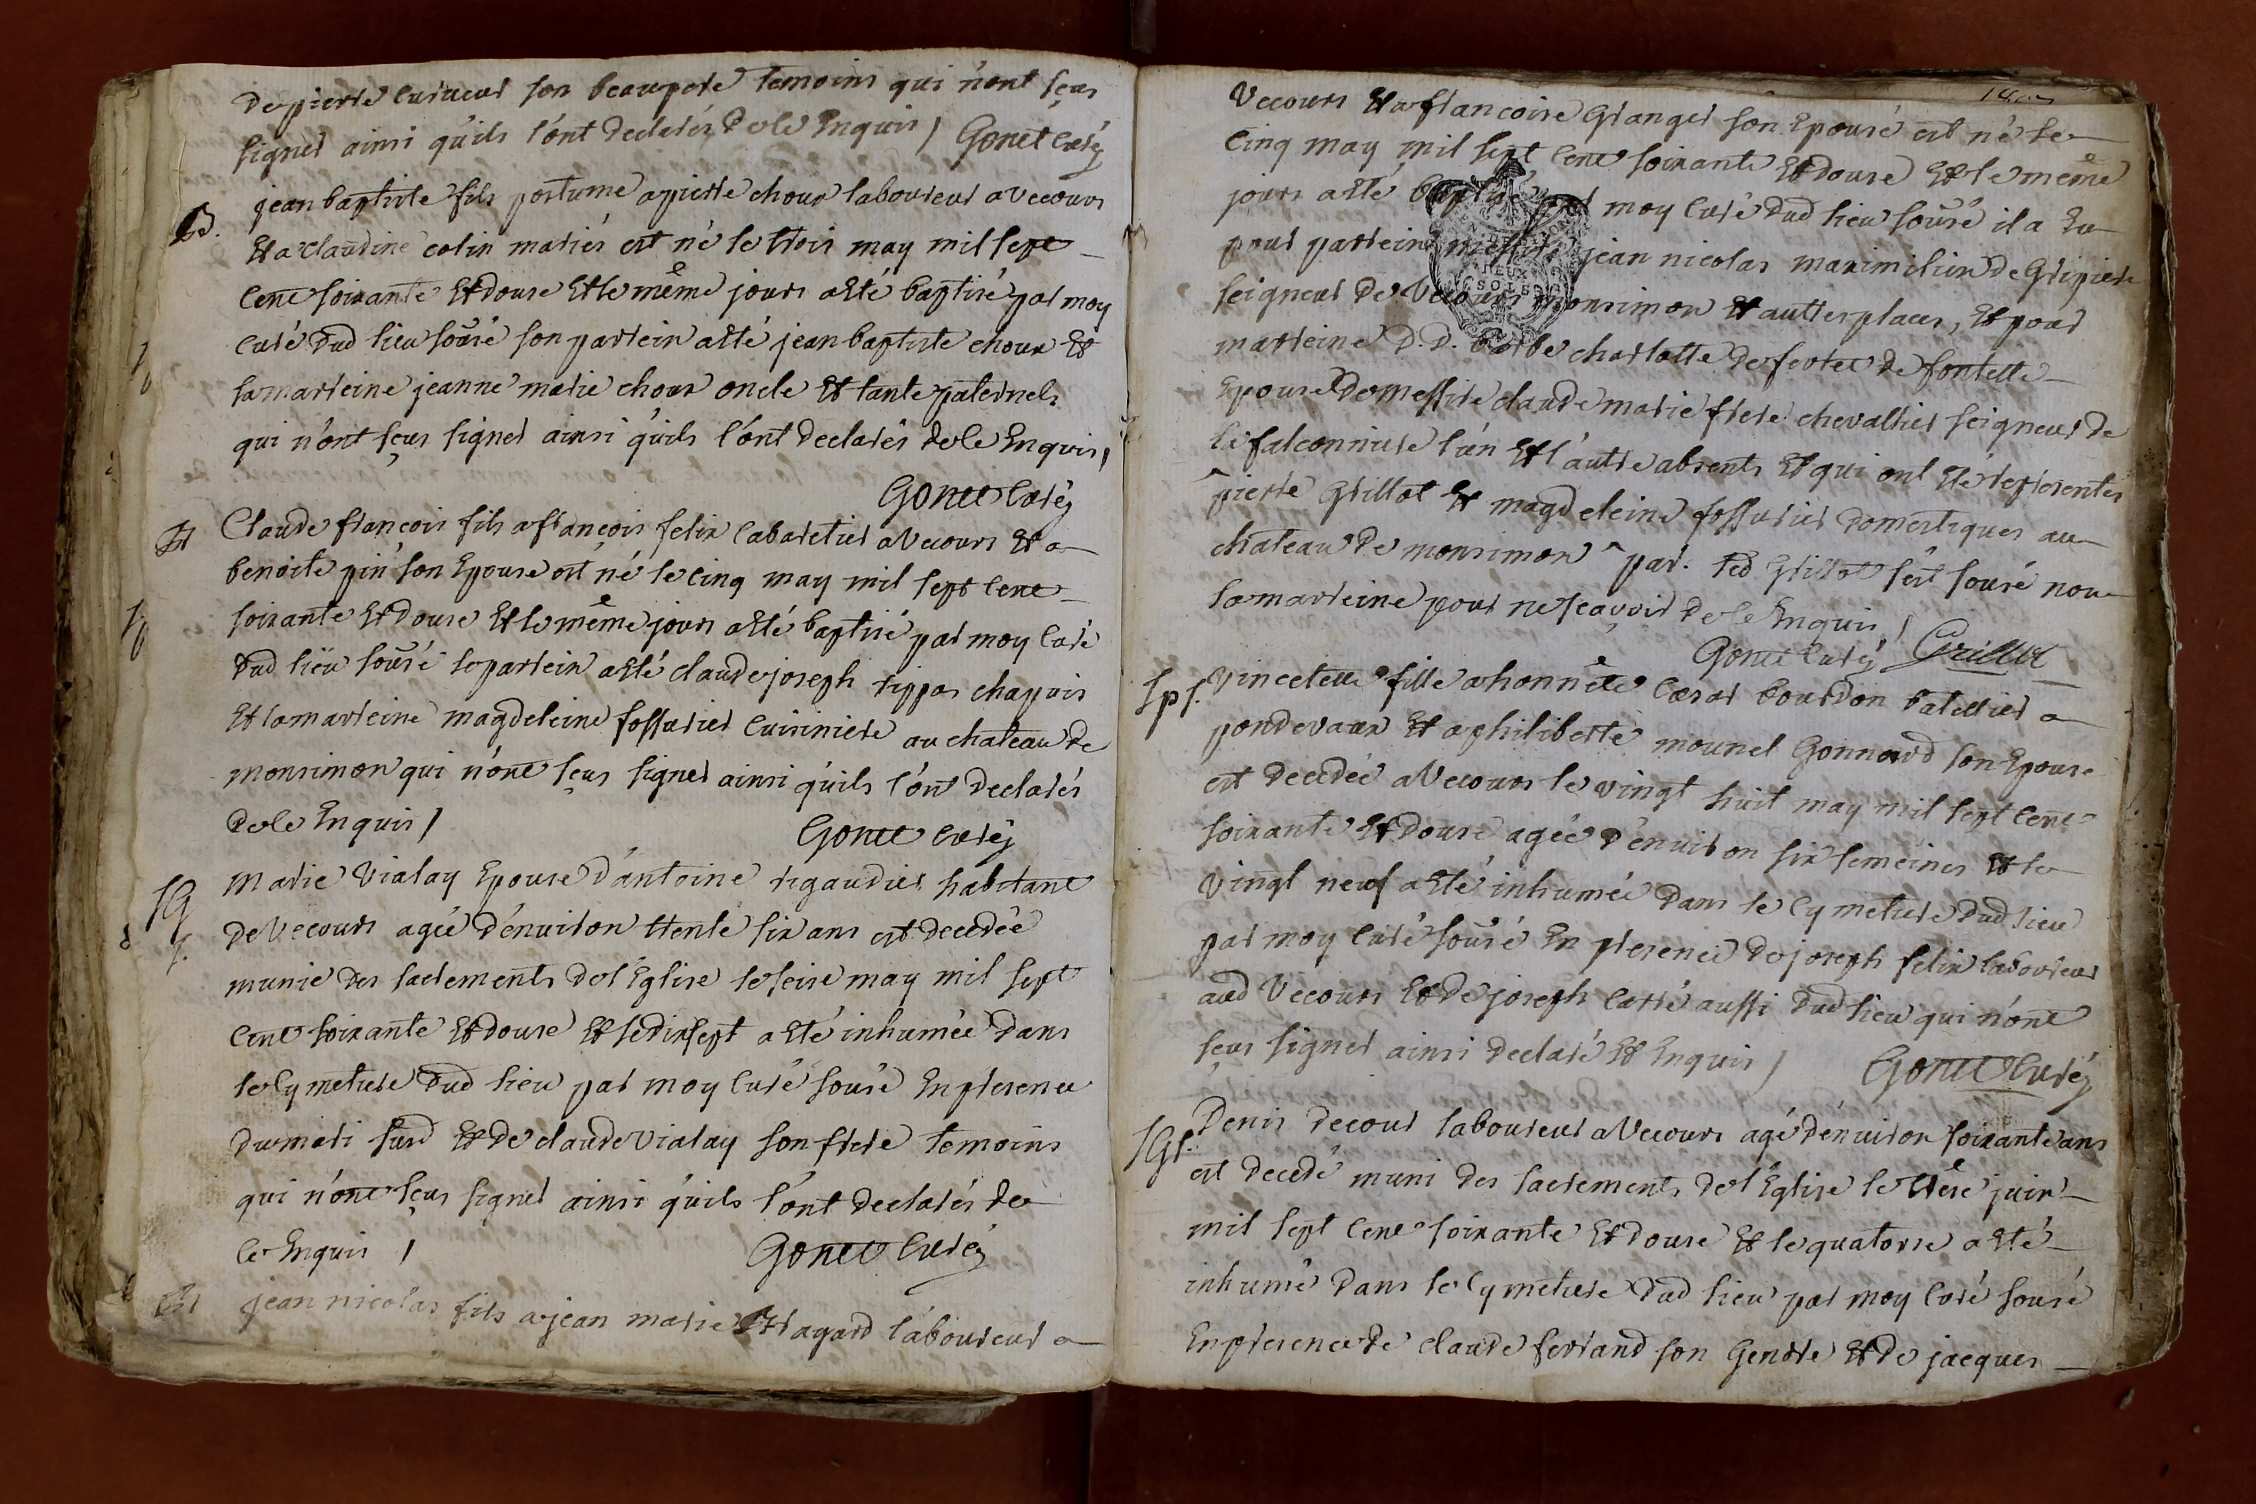 de pierre curneur son beaupere temoins qui n'ont sçus
signer ainsi qu'ils l'ont declarés de le Enquis / Gonet Curé
B. jean baptiste fils postume a pierre choux laboureur a Vecours
Et a Claudine colin mariés est né le trois may mil sept
cent soixante Et douze Et le même jours a Eté baptisé par moy
curé dud lieu sousé son parrein a Eté jean baptiste choux Et
sa marreine jeanne marie choux oncle Et tante paternels
qui n'ont sçus signer ainsi qu'ils l'ont declarés de le Enquis /
Gonet Curé
Bt Claude françois fils a françois felix Cabaretier a Vecours Et a
benoite pin son Epouse est né le cinq may mil sept cent
soixante Et douze Et le même jours a Eté baptisé par moy Curé
dud lieu sousé le parrein a Eté claude joseph rippas chapuis
Et la marreine magdeleine fossurier Cuisiniere au chateau de
monsimon qui n'ont sçus signer ainsi qu'ils l'ont declarés
de le Enquis / Gonet Curé
SG Marie Vialay Epouse d'antoine rigaudier habitant
f. de Vecours agée d'environ trente six ans est decedée
munie des sacrements de l'Eglise le seize may mil sept
cent soixante Et douze Et le dix sept a Eté inhumée dans
le Cymetiere dud lieu par moy Curé sousé En presence
du mari susd Et de claude vialay son frere temoins
qui n'ont sçus signer ainsi qu'ils l'ont declarés de
le Enquis / Gonet Curé
Bt jean nicolas fils a jean marie Bragard laboureur a
Vecours Et a françoise Granger son Epouse est né le
Cinq may mil sept cent soixante Et douze Et le même
jours a Eté baptisé par moy Curé dud lieu sousé il a Eu
pour parrein messire jean nicolas maximilien de Gripiere
DEUX
SOLS
seigneur de Vecours monsimon Et autres places, Et pour
marreine D. D. barbe charlotte de fontette
Epouse de messire claude marie frere chevallier seigneur de
la falconniere l'un Et l'autre absents Et qui ont Eté representés
^pierre Grillot Et magdeleine fossurier domestiques au
chateau de monsimon ^ par. led Grillot s'est sousé non
la marreine pour ne sçavoir de le Enquis /
Gonet Curé Grillot
Spf. vincelette fille a honnête Cesar bourdon batellier a
pondevaux Et a philiberte mounel Gonnard son Epouse
est decedée a Vecours le vingt huit may mil sept cent
soixante Et douze agée d'environ six semeines Et le
vingt neuf a Eté inhumée dans le Cymetiere dud lieu
par moy Curé sousé En presence de joseph felix laboureur
aud Vecours Et de joseph Carré aussi dud lieu qui n'ont
sçus signer ainsi declaré Et Enquis / Gonet Curé
SGf. Denis decour laboureur a Vecours agé d'environ soixante ans
est decedé muni des sacrements de l'Eglise le treze juin
mil sept cent soixante Et douze Et le quatorze a Eté
inhumé dans le Cymetiere dud lieu par moy Curé sousé
En presence de claude ferrand son Gendre Et de jacques